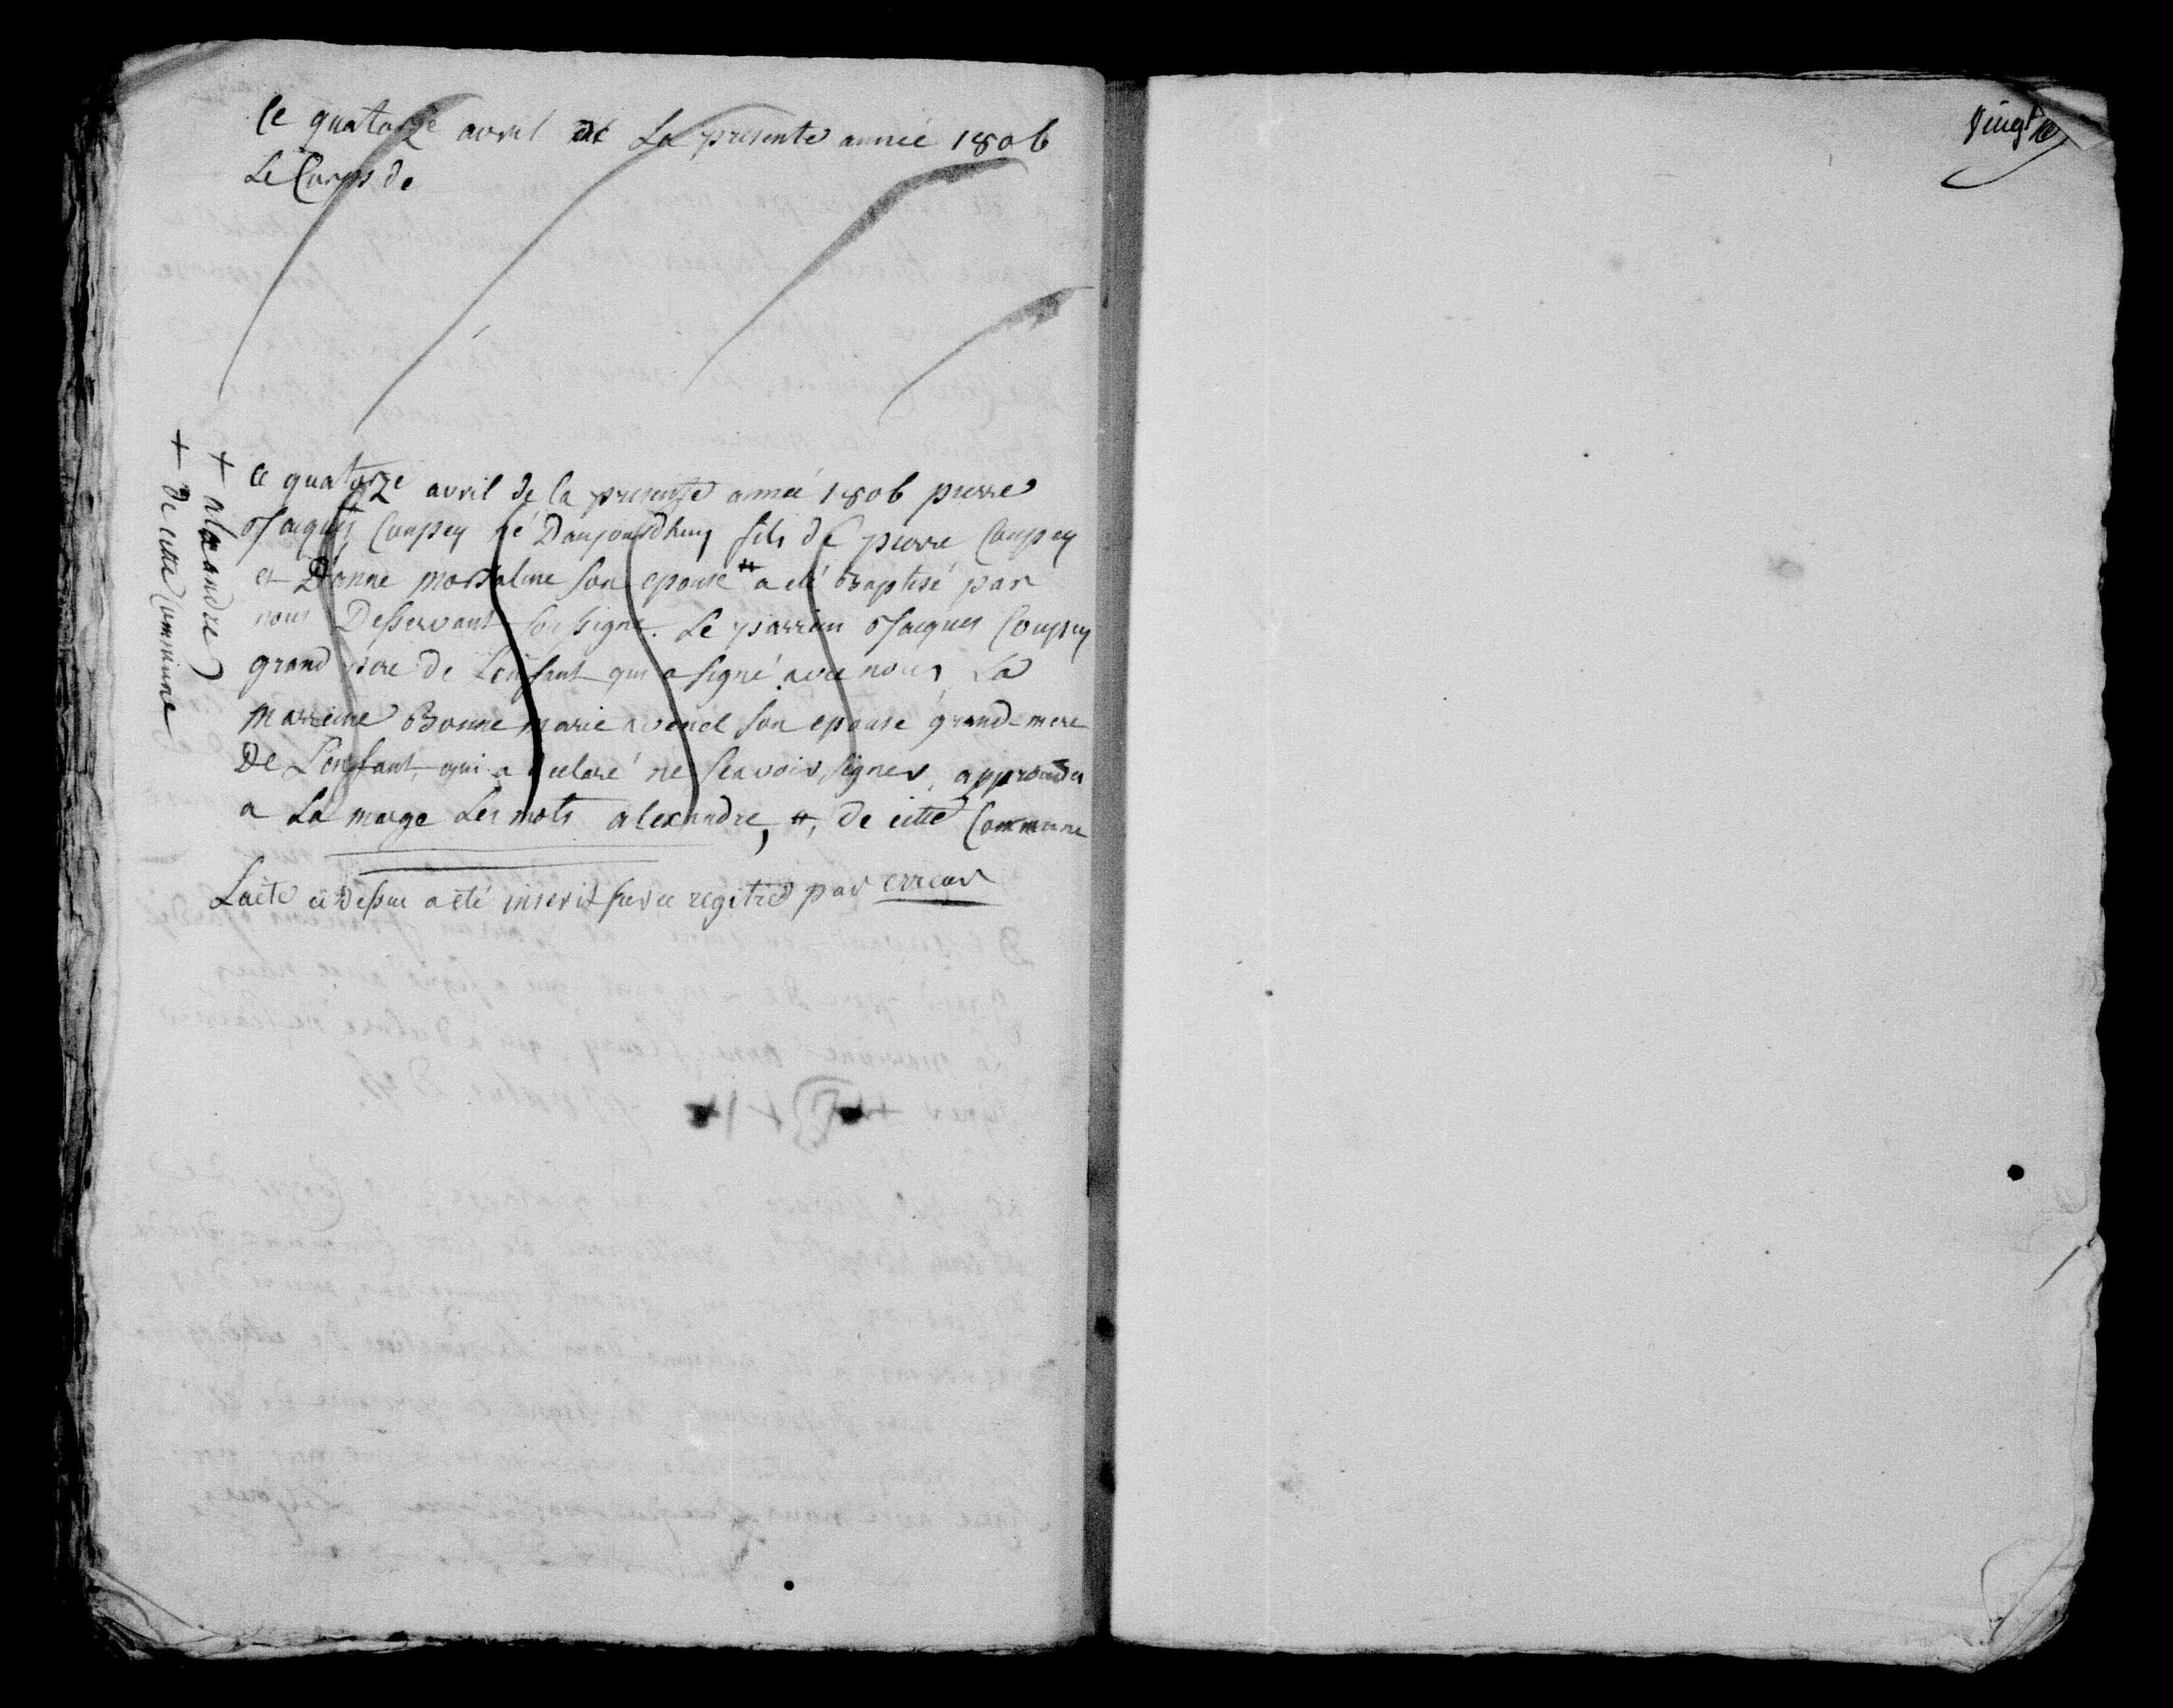 Ce quatorze avril de La presente année 1806
Le Corps de
ce quatorze avril de la presente année 1806 pierre
Jacques Coupey né Daujourdhuy fils de pierre Coupey
et Bonne mossaline son epouse # a eté Baptisé par
nous Desservant soussigné. Le parrein Jacques Coupey
grand pere de L'enfant qui a signé avec nous, La
marreine Bonne marie avenel son epouse grand-mere
De L'enfant, qui a declaré ne sçavoir signer, approuvés
a La marge Les mots alexandre, #, de cette Commune
L'acte ci Dessus a eté inscrit sur ce registre par erreur
+ alexandre
+ de cette Commune
Vingt